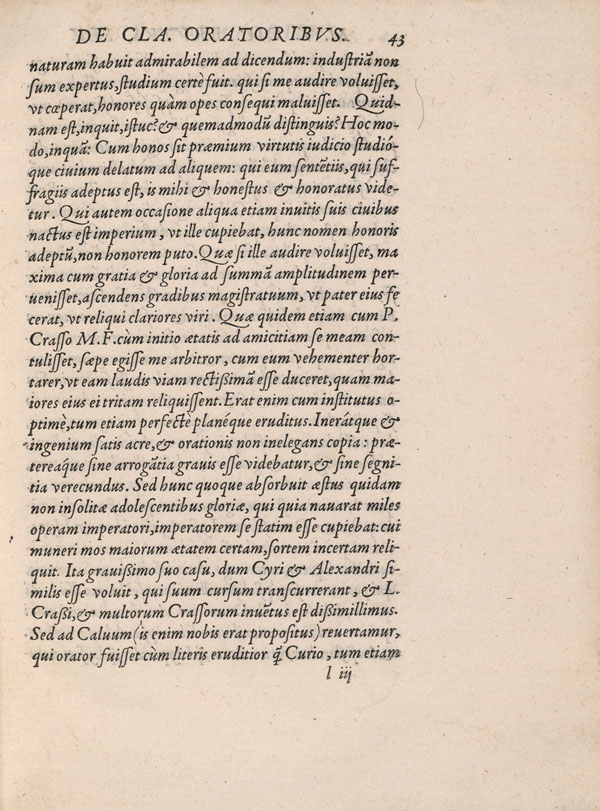 DE CLA. ORATORIBVS. 43
naturam habuit admirabilem ad dicendum: industriã non
sum expertus, studium certè fuit. qui si me audire voluisset,
vt cœperat, honores quàm opes consequi maluisset. Quid-
nam est, inquit, istuc? & quemadmodũ distinguis? Hoc mo-
do, inquã: Cum honos sit præmium virtutis iudicio studió-
que ciuium delatum ad aliquem: qui eum sentẽtiis, qui suf-
fragiis adeptus est, is mihi & honestus & honoratus vide-
tur. Qui autem occasione aliqua etiam inuitis suis ciuibus
nactus est imperium, vt ille cupiebat, hunc nomen honoris
adeptũ, non honorem puto. Quæ si ille audire voluisset, ma
xima cum gratia & gloria ad summã amplitudinem per-
uenisset, ascendens gradibus magistratuum, vt pater eius fe
cerat, vt reliqui clariores viri. Quæ quidem etiam cum P.
Crasso M.F. cùm initio ætatis ad amicitiam se meam con-
tulisset, sæpe egisse me arbitror, cum eum vehementer hor-
tarer, vt eam laudis viam rectissimã esse duceret, quam ma-
iores eius ei tritam reliquissent. Erat enim cum institutus o-
ptimè, tum etiam perfectè planéque eruditus. Inerátque &
ingenium satis acre, & orationis non inelegans copia: præ-
tereáque sine arrogãtia grauis esse videbatur, & sine segni-
tia verecundus. Sed hunc quoque absorbuit æstus quidam
non insolitæ adolescentibus gloriæ, qui quia nauarat miles
operam imperatori, imperatorem se statim esse cupiebat: cui
muneri mos maiorum ætatem certam, sortem incertam reli-
quit. Ita grauissimo suo casu, dum Cyri & Alexandri si-
milis esse voluit, qui suum cursum transcurrerant, & L.
Crassi, & multorum Crassorum inuẽtus est dissimillimus.
Sed ad Caluum (is enim nobis erat propositus) reuertamur,
qui orator fuisset cùm literis eruditior q̃ Curio, tum etiam
l iij